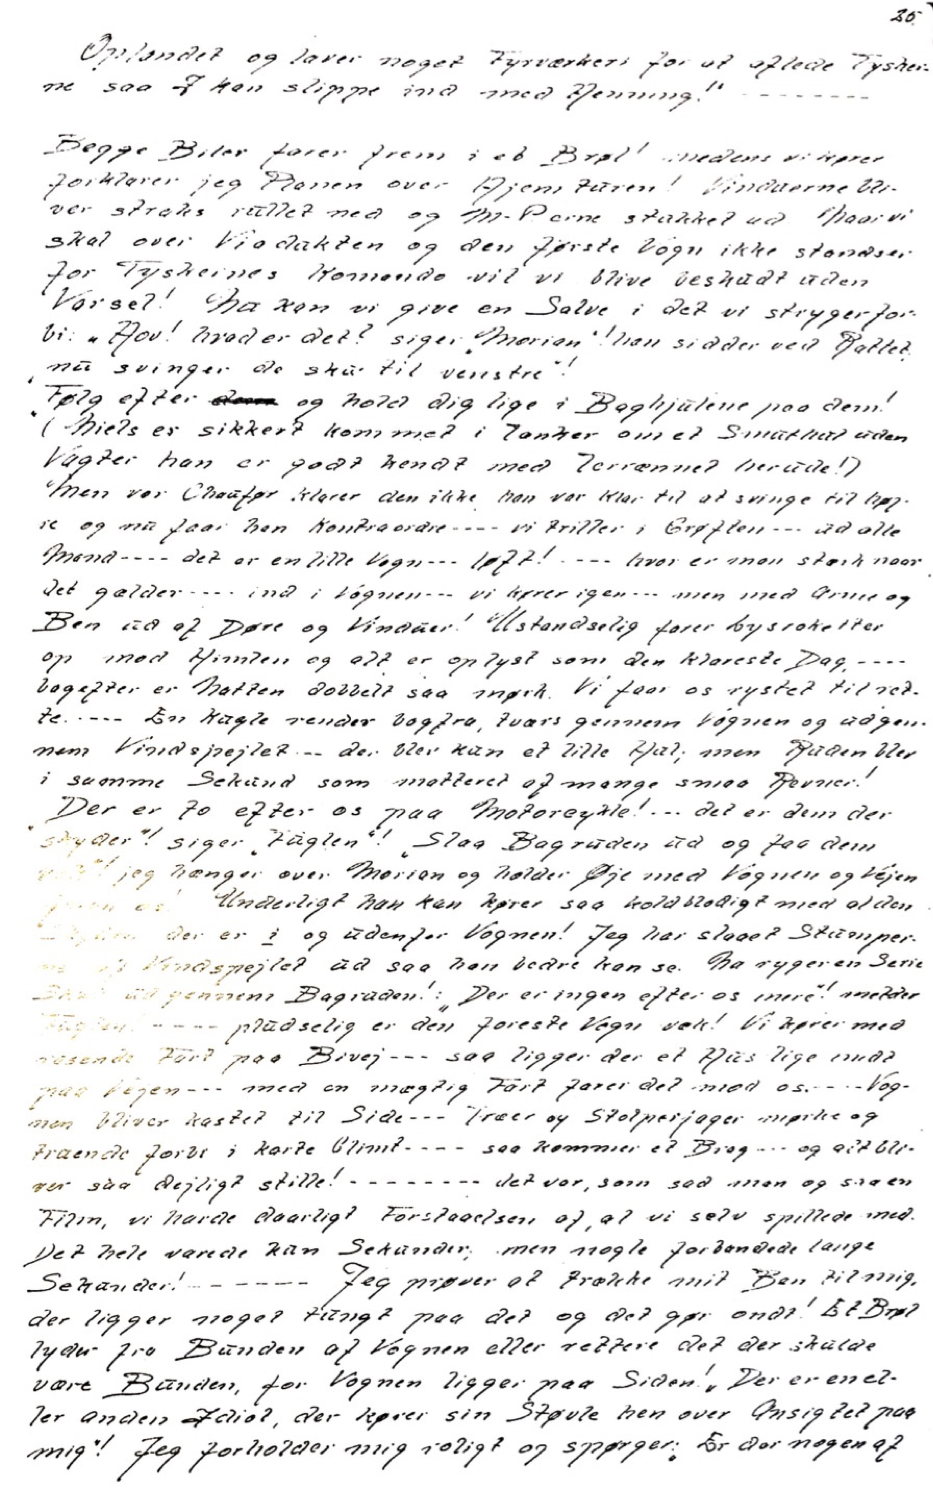 25.
Oplandet og laver noget Fyrværkeri for at aflede Tysker-
ne saa I kan slippe ind med Henning!" ---------
Begge Biler farer frem i et Brøl! medens vi kører
forklarer jeg Planen over Hjemturen! Vinduerne bli-
ver straks rullet ned og M-Perne stukket ud Naar vi
skal over Viadukten og den første Vogn ikke standser
for Tyskernes Komando vil vi blive beskudt uden
Varsel! Nu kan vi give en Salve i det vi stryger for-
bi: "Hov! hvad er det? siger "Morian"! han sidder ved Rattet,
"nu svinger de sku' til venstre"!
"Følg efter og hold dig lige i Baghjulene paa dem!
(Niels er sikkert kommet i Tanker om et Smuthul uden
Vagter han er godt kendt med Terrænnet herude!)
Men vor Chauför klarer den ikke han var klar til at svinge til høj-
re og nu faar han Kontraordre---- vi triller i Grøften--- ud alle
Mand---- det er en lille Vogn--- løft! ---- hvor er man stærk naar
det gælder---- ind i Vognen--- vi kører igen--- men med Arme og
Ben ud af Døre og Vinduer! Ustandselig farer Lysraketter
op mod Himlen og alt er oplyst som den klareste Dag,----
bagefter er Natten dobbelt saa mørk. Vi faar os rystet til ret-
te.---- En Kugle render bagfra, tværs gennem Vognen og ud gen-
nem Vindspejlet--- der blev kun et lille Hul; men Ruden blev
i samme Sekund som matteret af mange smaa Revner!
Der er to efter os paa Motorcykle!... det er dem der
"skyder"! siger "Fuglen"! "Slaa Bagruden ud og faa dem
jeg hænger over Morian og holder Øje med Vognen og Vejen
foran os! Underligt han kan kører saa koldblodigt med al den
der er i og udenfor Vognen! Jeg har slaaet Stumper-
ne af Vindspejlet ud saa han bedre kan se. Nu ryger en Serie
Skud ud gennem Bagruden!: "Der er ingen efter os mere"! melder
Fuglen! ---- pludselig er den foreste Vogn væk! Vi kører med
rasende Fart paa Bivej--- saa ligger der et Hus lige midt
paa Vejen--- med en mægtig Fart farer det mod os.----Vog-
nen bliver kastet til Side--- Træer og Stolper jager mørke og
truende forbi i korte Glimt---- saa kommer et Brag--- og alt bli-
ver saa dejligt stille! -------- det var, som sad man og saa en
Film, vi havde daarligt Forstaaelsen af, at vi selv spillede med.
Det hele varede kun Sekunder; men nogle forbandede lange
Sekunder!------ Jeg prøver at trække mit Ben til mig,
der ligger noget tungt paa det og det gør ondt! Et Brøl
lyder fra Bunden af Vognen eller rettere det der skulde
være Bunden, for Vognen ligger paa Siden! "Der er en el-
ler anden Idiot, der kører sin Støvle hen over Ansigtet paa
mig"! Jeg forholder mig roligt og spørger: "Er der nogen af